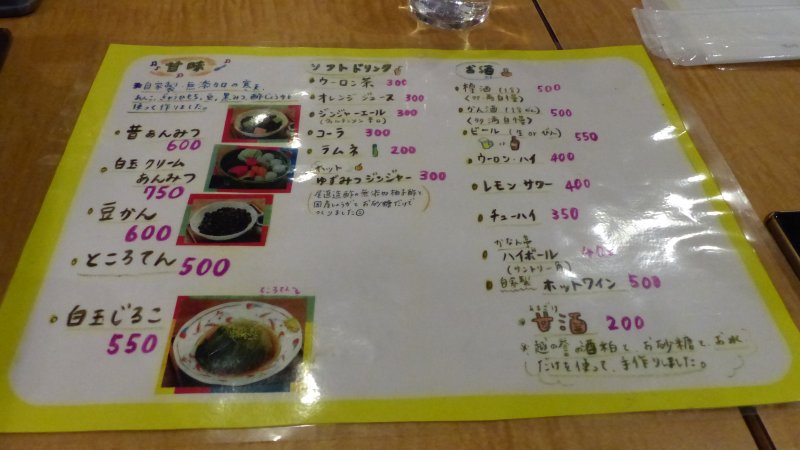 甘味
自家製!無添加の寒天、
使って作りました。
昔あんみつ
600
白玉クリーム
あんみつ
750
豆かん
600
ところてん 500
白玉じるこ
550
ところてん
ソフトドリンク
ウーロン茶 300
オレンジジュース 300
ジンジャーエール 300
コーラ 300
ラムネ 200
ホット
ゆずみつジンジャー 300
国産しょうがと お砂糖だけで
つくりました
お酒
樽酒 500
かん酒 500
ビール (生 or びん) 550
ウーロン・ハイ 400
レモン サワー 400
チューハイ 350
ハイボール 400
(サントリー角)
自家製 ホットワイン 500
甘酒 200
※越の誉の酒粕と、お砂糖と、お水
だけを使って、手作りしました。